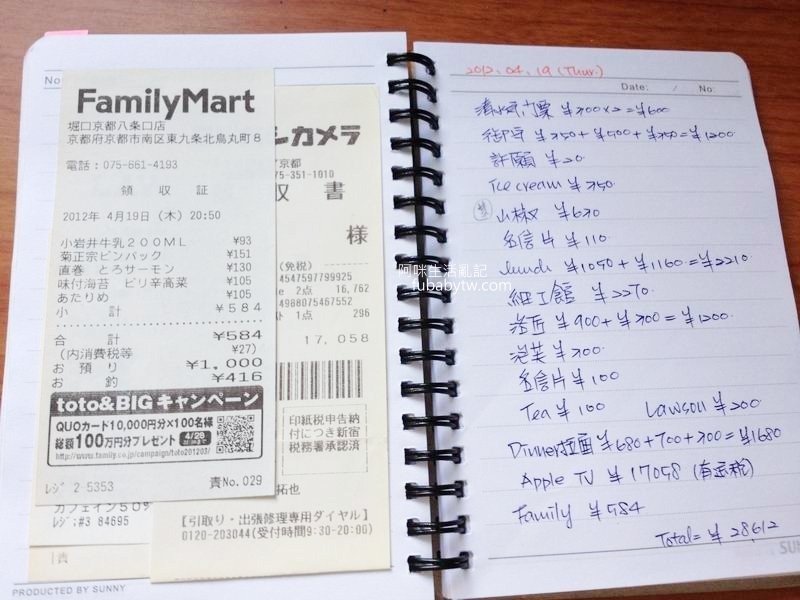 No
FamilyMart
堀口京都八条口店
京都府京都市南区東九条北烏丸町8
電話:075-661-4193
領 収 証
2012年 4月19日(木)20:50
小岩井牛乳200ML ¥93
菊正宗ピンパック ¥151
直巻 とろサーモン ¥130
味付海苔 ピリ辛高菜 ¥105
あたりめ ¥105
小 計 ¥584
合 計 ¥584
(内消費税等 ¥27)
お 預 り ¥1,000
お 釣 ¥416
toto&BIGキャンペーン
QUOカード10,000円分×100名様
総額100万円分プレゼント 4/28
http://www.family.co.jp/campaign/toto201203/
レジ 2-5353 責No.029
カフェイン50%
レジ:#3 84695
責
シカメラ
京都
75-351-1010
収 書
様
(免税)
4547597799925
2点 16,762
4988075467552
ト 1点 296
17,058
印紙税申告納
付につき新宿
税務署承認済
拓也
【引取り・出張修理専用ダイヤル】
0120-203044(受付時間9:30-20:00)
PRODUCED BY SUNNY
2012.04.19 (Thur.)
Date: / No:
清水寺門票 ¥300×2=¥600
御守 ¥350+¥500+¥350=¥1200
許願 ¥20
Ice cream ¥350
山椒 ¥630
名信片 ¥110
lunch ¥1050+¥1160=¥2210
細工館 ¥2270
¥900+¥300=¥1200
泡芙 ¥300
名信片 ¥100
Tea ¥100 Lawson ¥200
Dinner拉麵 ¥680+700+300=¥1680
Apple TV ¥17058 (有退稅)
Family ¥584
Total=¥28,612
SUN
阿咪生活亂記
fubabytw.com